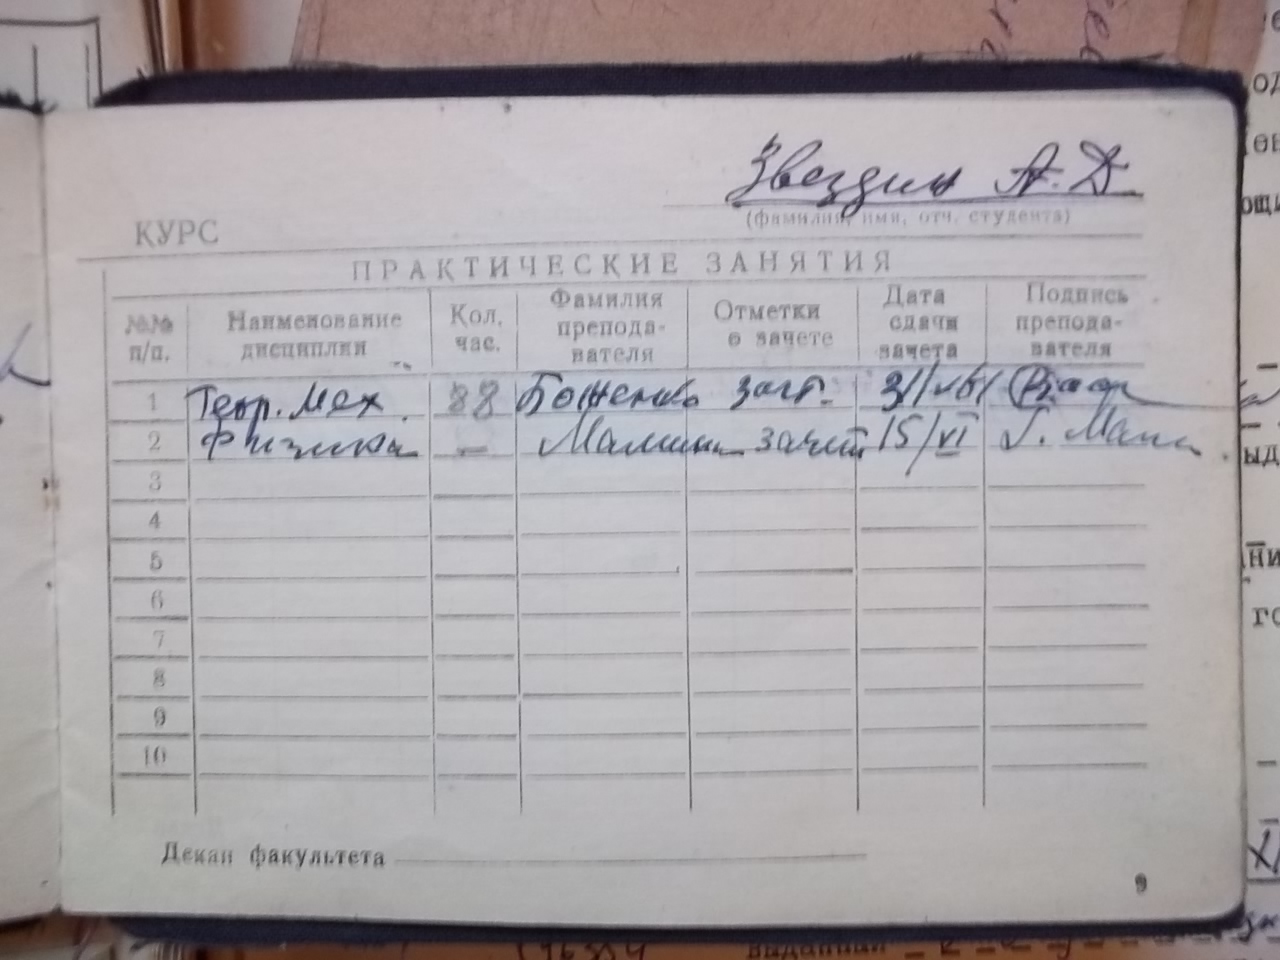 Звездин А. Д
(фамилия, имя, отч. студента)
КУРС
ПРАКТИЧЕСКИЕ ЗАНЯТИЯ
№№ п/п. Наименование дисциплин Кол. час. Фамилия преподавателя Отметки о зачете Дата сдачи зачета Подпись преподавателя
1 Теор. Мех. 88 зачт.
2 Физика — зачет 15/VI
3
4
5
6
7
8
9
10
Декан факультета
9